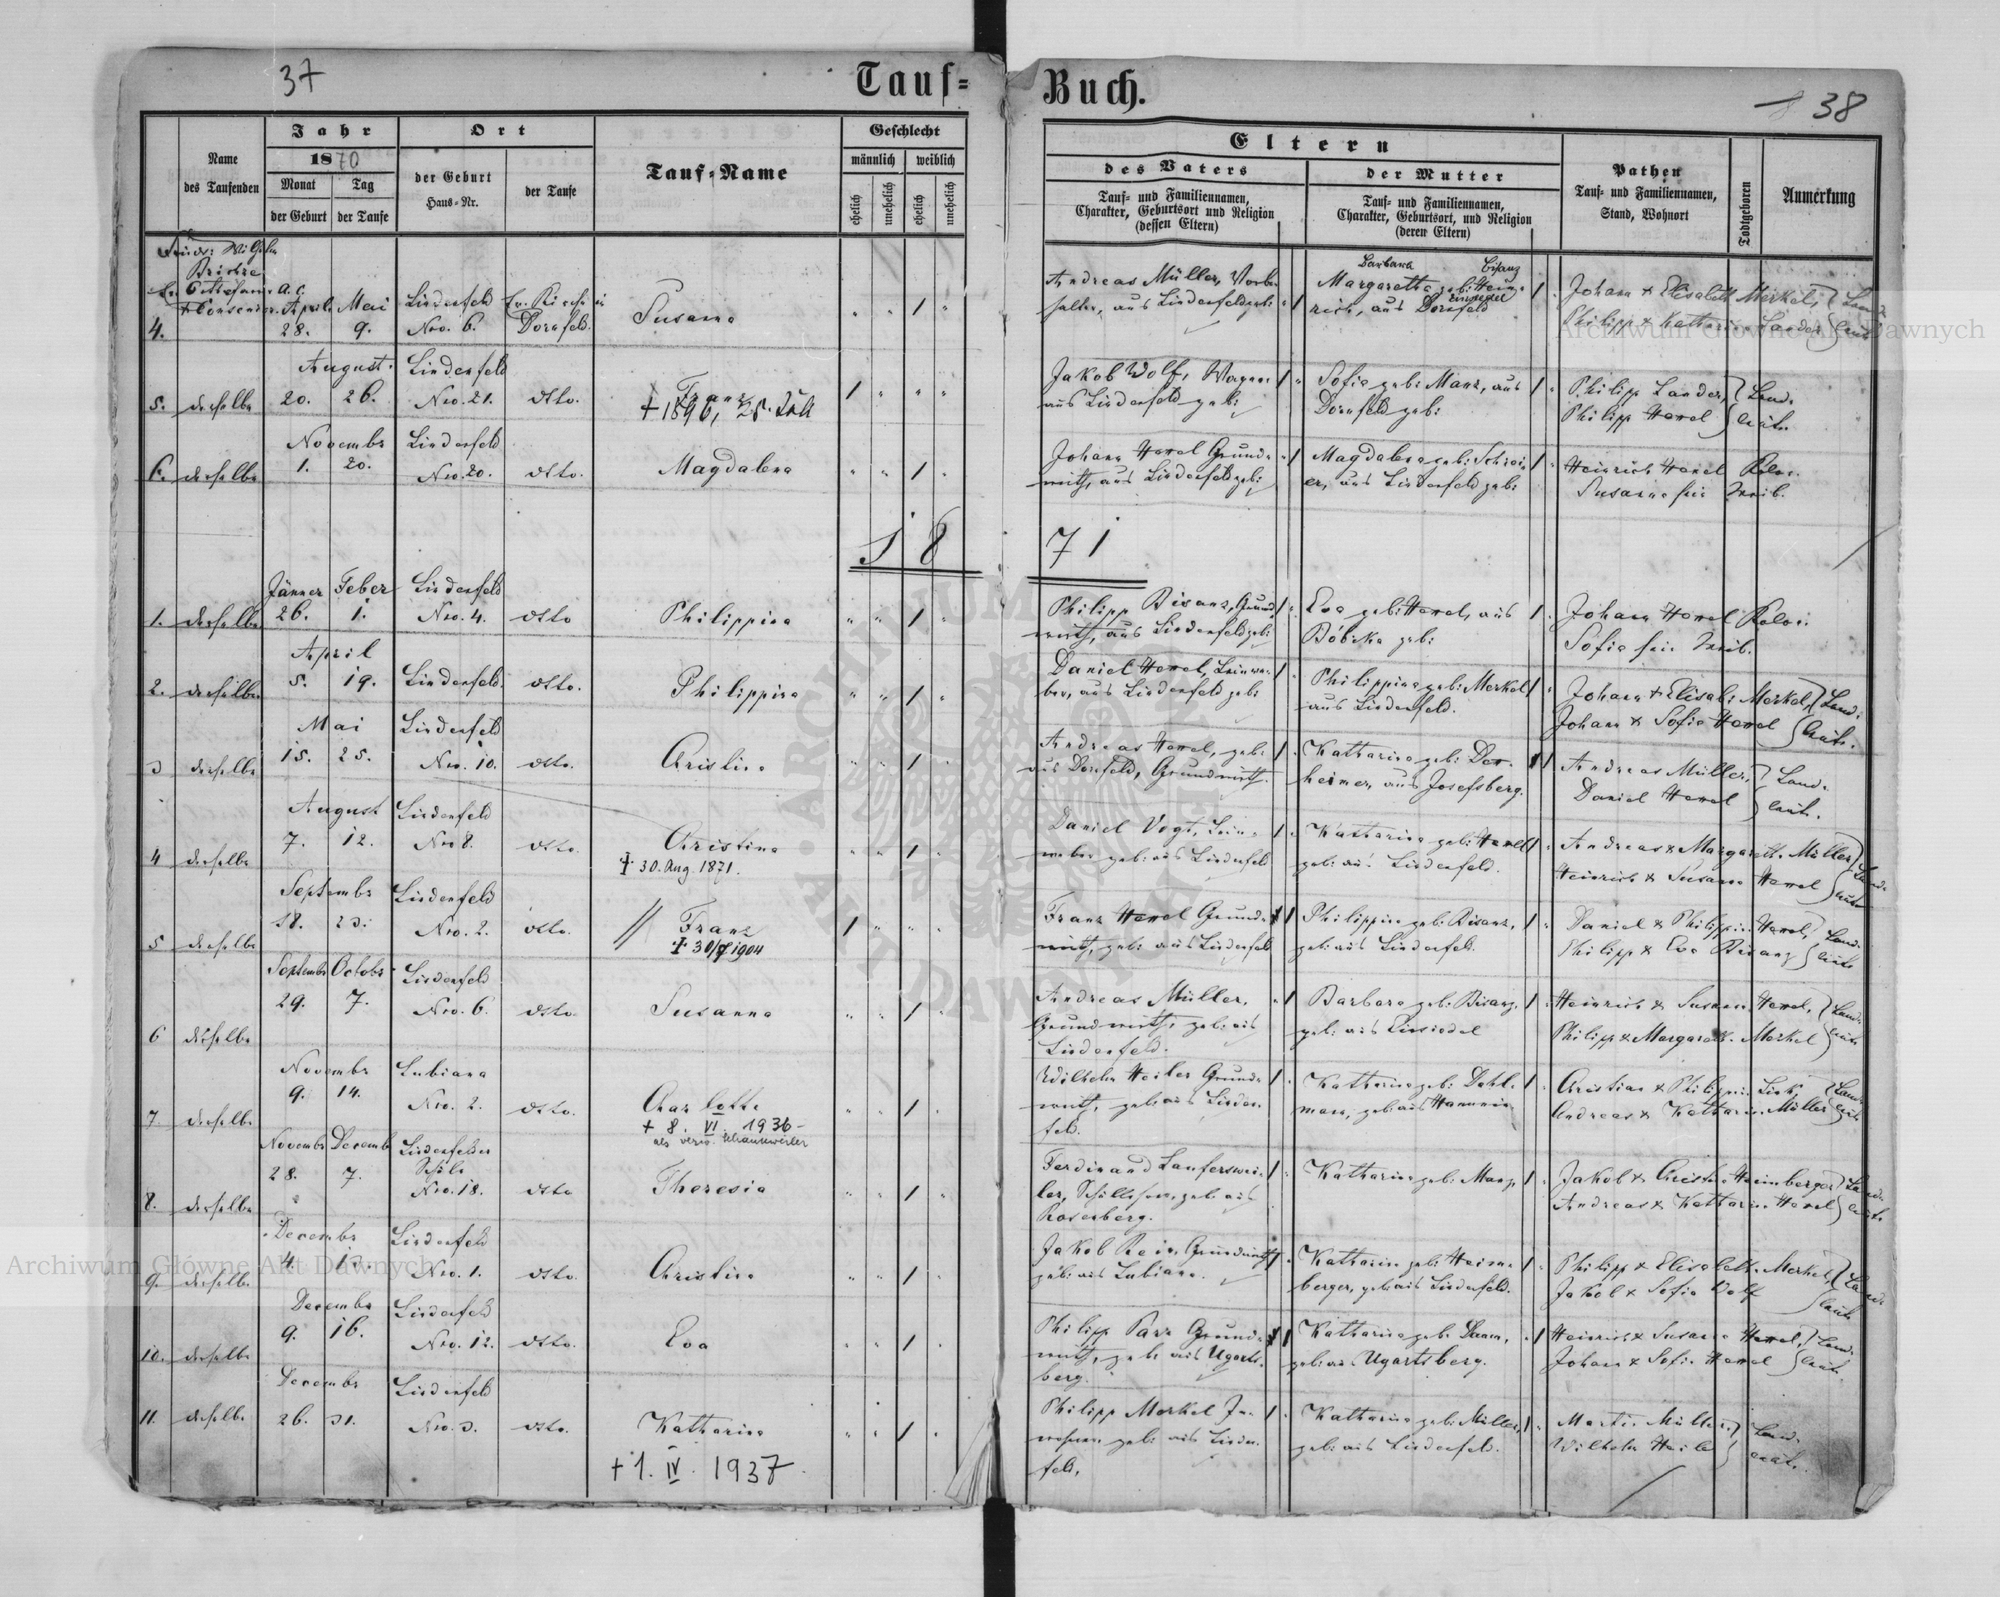 37
Tauf-
Buch.
38
Name
des Taufenden
Jahr
1870
Monat
der Geburt
Tag
der Taufe
Ort
der Geburt
Haus-Nr.
der Taufe
Tauf-Name
Geschlecht
männlich
weiblich
ehelich
unehelich
ehelich
unehelich
Eltern
des Vaters
Tauf- und Familiennamen,
Charakter, Geburtsort und Religion
(dessen Eltern)
der Mutter
Tauf- und Familiennamen,
Charakter, Geburtsort, und Religion
(deren Eltern)
Pathen
Tauf- und Familiennamen,
Stand, Wohnort
Todtgeboren
Anmerkung
4. April 28. Mai 9. Lindenfeld Nro. 6. Ev. Kirche in Dornfeld. Susanna
Andreas Müller, aus Lindenfeld geb:
Barbara Bisanz
Margaretha geb: Heinrich, aus Dornfeld
Einsiedel
Johann & Elisabeth Merkel,
Philipp & Katharina Lander
5. derselbe August 20. 26. Lindenfeld Nro. 21. dsto. Franz
+ 1896, 25. Juli
Jakob Wolf, Wagner
aus Lindenfeld geb:
Sofia geb: Manz, aus
Dornfeld geb:
Philipp Lander,
Philipp Hexel
Landleute.
6. derselbe Novembr 1. 20. Lindenfeld Nro. 20. dsto. Magdalena
Johann Hexel Grundwirth, aus Lindenfeld geb:
Magdalena geb: aus Lindenfeld geb:
Heinrich Hexel
Susanna sein Weib.
18
71
1. derselbe Jänner 26. Feber 1. Lindenfeld Nro. 4. dsto Philippina
Philipp Bisanz, Grundwirth, aus Lindenfeld geb:
Eva geb: Hexel, aus
Bóbrka geb:
Johann Hexel
Sofia sein Weib.
2. derselbe April 5. 19. Lindenfeld. dsto. Philippina
Daniel Hexel, Leinweber, aus Lindenfeld geb:
Philippina geb: Merkel
aus Lindenfeld.
Johann & Elisab: Merkel,
Johann & Sofia Hexel
Landleute.
3 derselbe Mai 15. 25. Lindenfeld Nro. 10. dsto. Christina
Andreas Hexel, geb:
aus Dornfeld, Grundwirth.
Katharina geb: aus Josefsberg.
Andreas Müller,
Daniel Hexel
Landleute.
4 derselbe August 7. 12. Lindenfeld Nro 8. dsto. Christina
‡ 30. Aug. 1871.
Daniel Vogt, Leinweber geb: aus Lindenfeld
Katharina geb: Hexel
geb: aus Lindenfeld.
Andreas & Margareth. Müller
Heinrich & Susanna Hexel
Landleute
5 derselbe Septembr 18. 23. Lindenfeld Nro. 2. dsto. // Franz
‡ 30/9 1904
Franz Hexel Grundwirth, geb: aus Lindenfeld
Philippina geb: Bisanz,
geb: aus Lindenfeld.
Daniel & Philippina Hexel,
Philipp & Eva Bisanz
Landleute
6 derselbe Septembr 29. Octobr 7. Lindenfeld Nro. 6. dsto. Susanna
Andreas Müller,
Grundwirth, geb: aus
Lindenfeld.
Barbara geb: Bisanz,
geb: aus Einsiedel
Heinrich & Susanna Hexel,
Philipp & Margareth. Merkel
Landleute
7. derselbe Novembr 9. 14. Lubiana Nro. 2. dsto. Charlotte
+ 8. VI. 1936 -
als verw.
Wilhelm Heiler Grundwirth, geb: aus Lindenfeld.
Katharina geb: Dahlmann, geb: aus
Christian & Philippina Link,
Andreas & Katharina Müller
Landleute
8. derselbe Novembr 28. Decembr 7. Lindenfelder Schule Nro. 18. dsto Theresia
Ferdinand Laufersweiler, Schullehrer, geb: aus
Rosenberg.
Katharina geb: Manz,
Jakob & Christina Heimberger
Andreas & Katharina Hexel
Landleute
9. derselbe Decembr 4. Lindenfeld Nro. 1. dsto. Christina
Jakob Reis, Grundwirth
geb: aus Lubiana.
Katharina geb: Heimberger, geb: aus Lindenfeld.
Philipp & Elisabeth Merkel,
Jakob & Sofia Wolf
Landleute
10. derselbe Decembr 9. 16. Lindenfeld Nro. 12. dsto. Eva
Philipp Grundwirth, geb: aus Ugartsberg.
Katharina geb:
geb: aus Ugartsberg.
Heinrich & Susanna Hexel,
Johann & Sofia Hexel
Landleute.
11. derselbe Decembr 26. 31. Lindenfeld Nro. 3. dsto. Katharina
+ 1. IV. 1937.
Philipp Merkel Inwohner geb: aus Lindenfeld,
Katharina geb: Müller,
geb: aus Lindenfeld.
Martin Müller,
Wilhelm Heiler
Landleute.
Archiwum Główne Akt Dawnych
Archiwum Główne Akt Dawnych